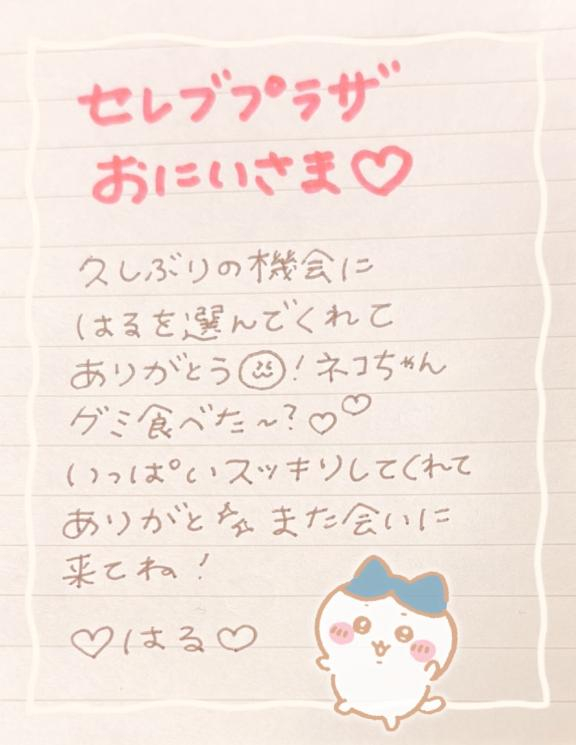 セレブプラザ
おにいさま♡
久しぶりの機会に
はるを選んでくれて
ありがとう! ネコちゃん
グミ食べた~?♡♡
いっぱいスッキリしてくれて
ありがと☆☆ また会いに
来てね!
♡はる♡